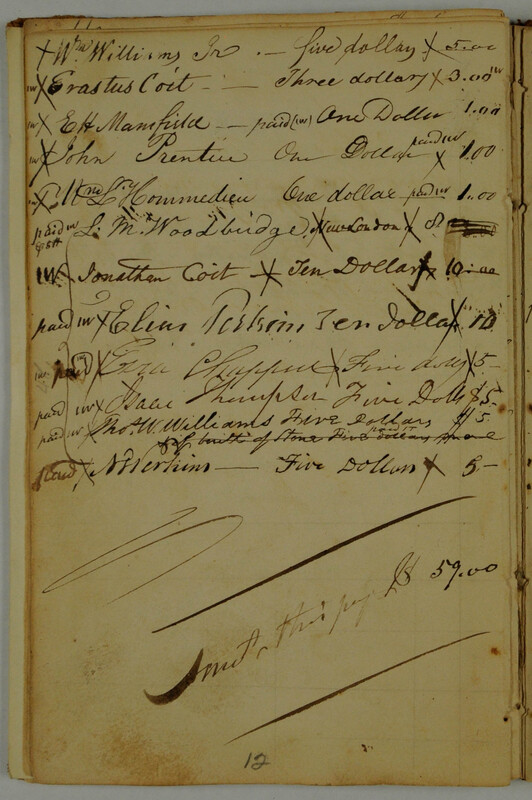 X Wm Williams Jr. — five dollars X 5.00
IW X Erastus Coit — Three dollars X 3.00 IW
IW X EH Mansfield — paid (IW) One Dollar 1.00
IW X John Prentice One Dollar paid IW X 1.00
X L'Hommedieu One dollar paid IW 1.00
paid IW L. M. Woodbridge X New London X
IW Jonathan Coit X Ten Dollars X 10.00
paid IW X Elias Perkins Ten dollars X 10
paid IW X Ezra Chappell X Five dolls X 5—
paid IW X Isaac Thompson Five Dolls $5—
paid IW X Thos. W. Williams Five Dollars $5
of Stone Five dollars
paid X N Perkins — Five Dollars X 5—
Amt. this page $ 59.00
12